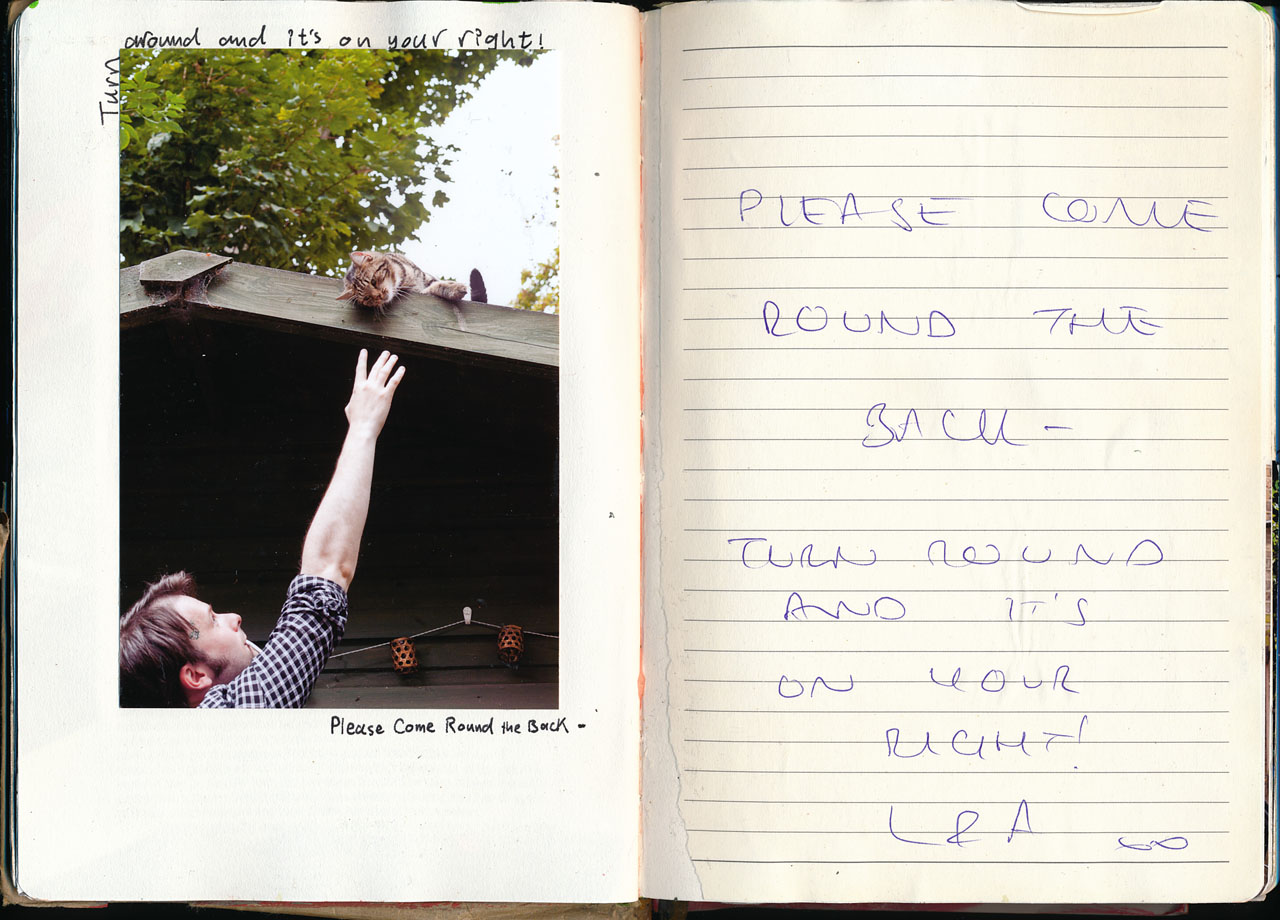 Turn
around and it's on your right!
Please Come Round the Back -
PLEASE COME
ROUND THE
BACK -
TURN ROUND
AND IT'S
ON YOUR
RIGHT!
L & A